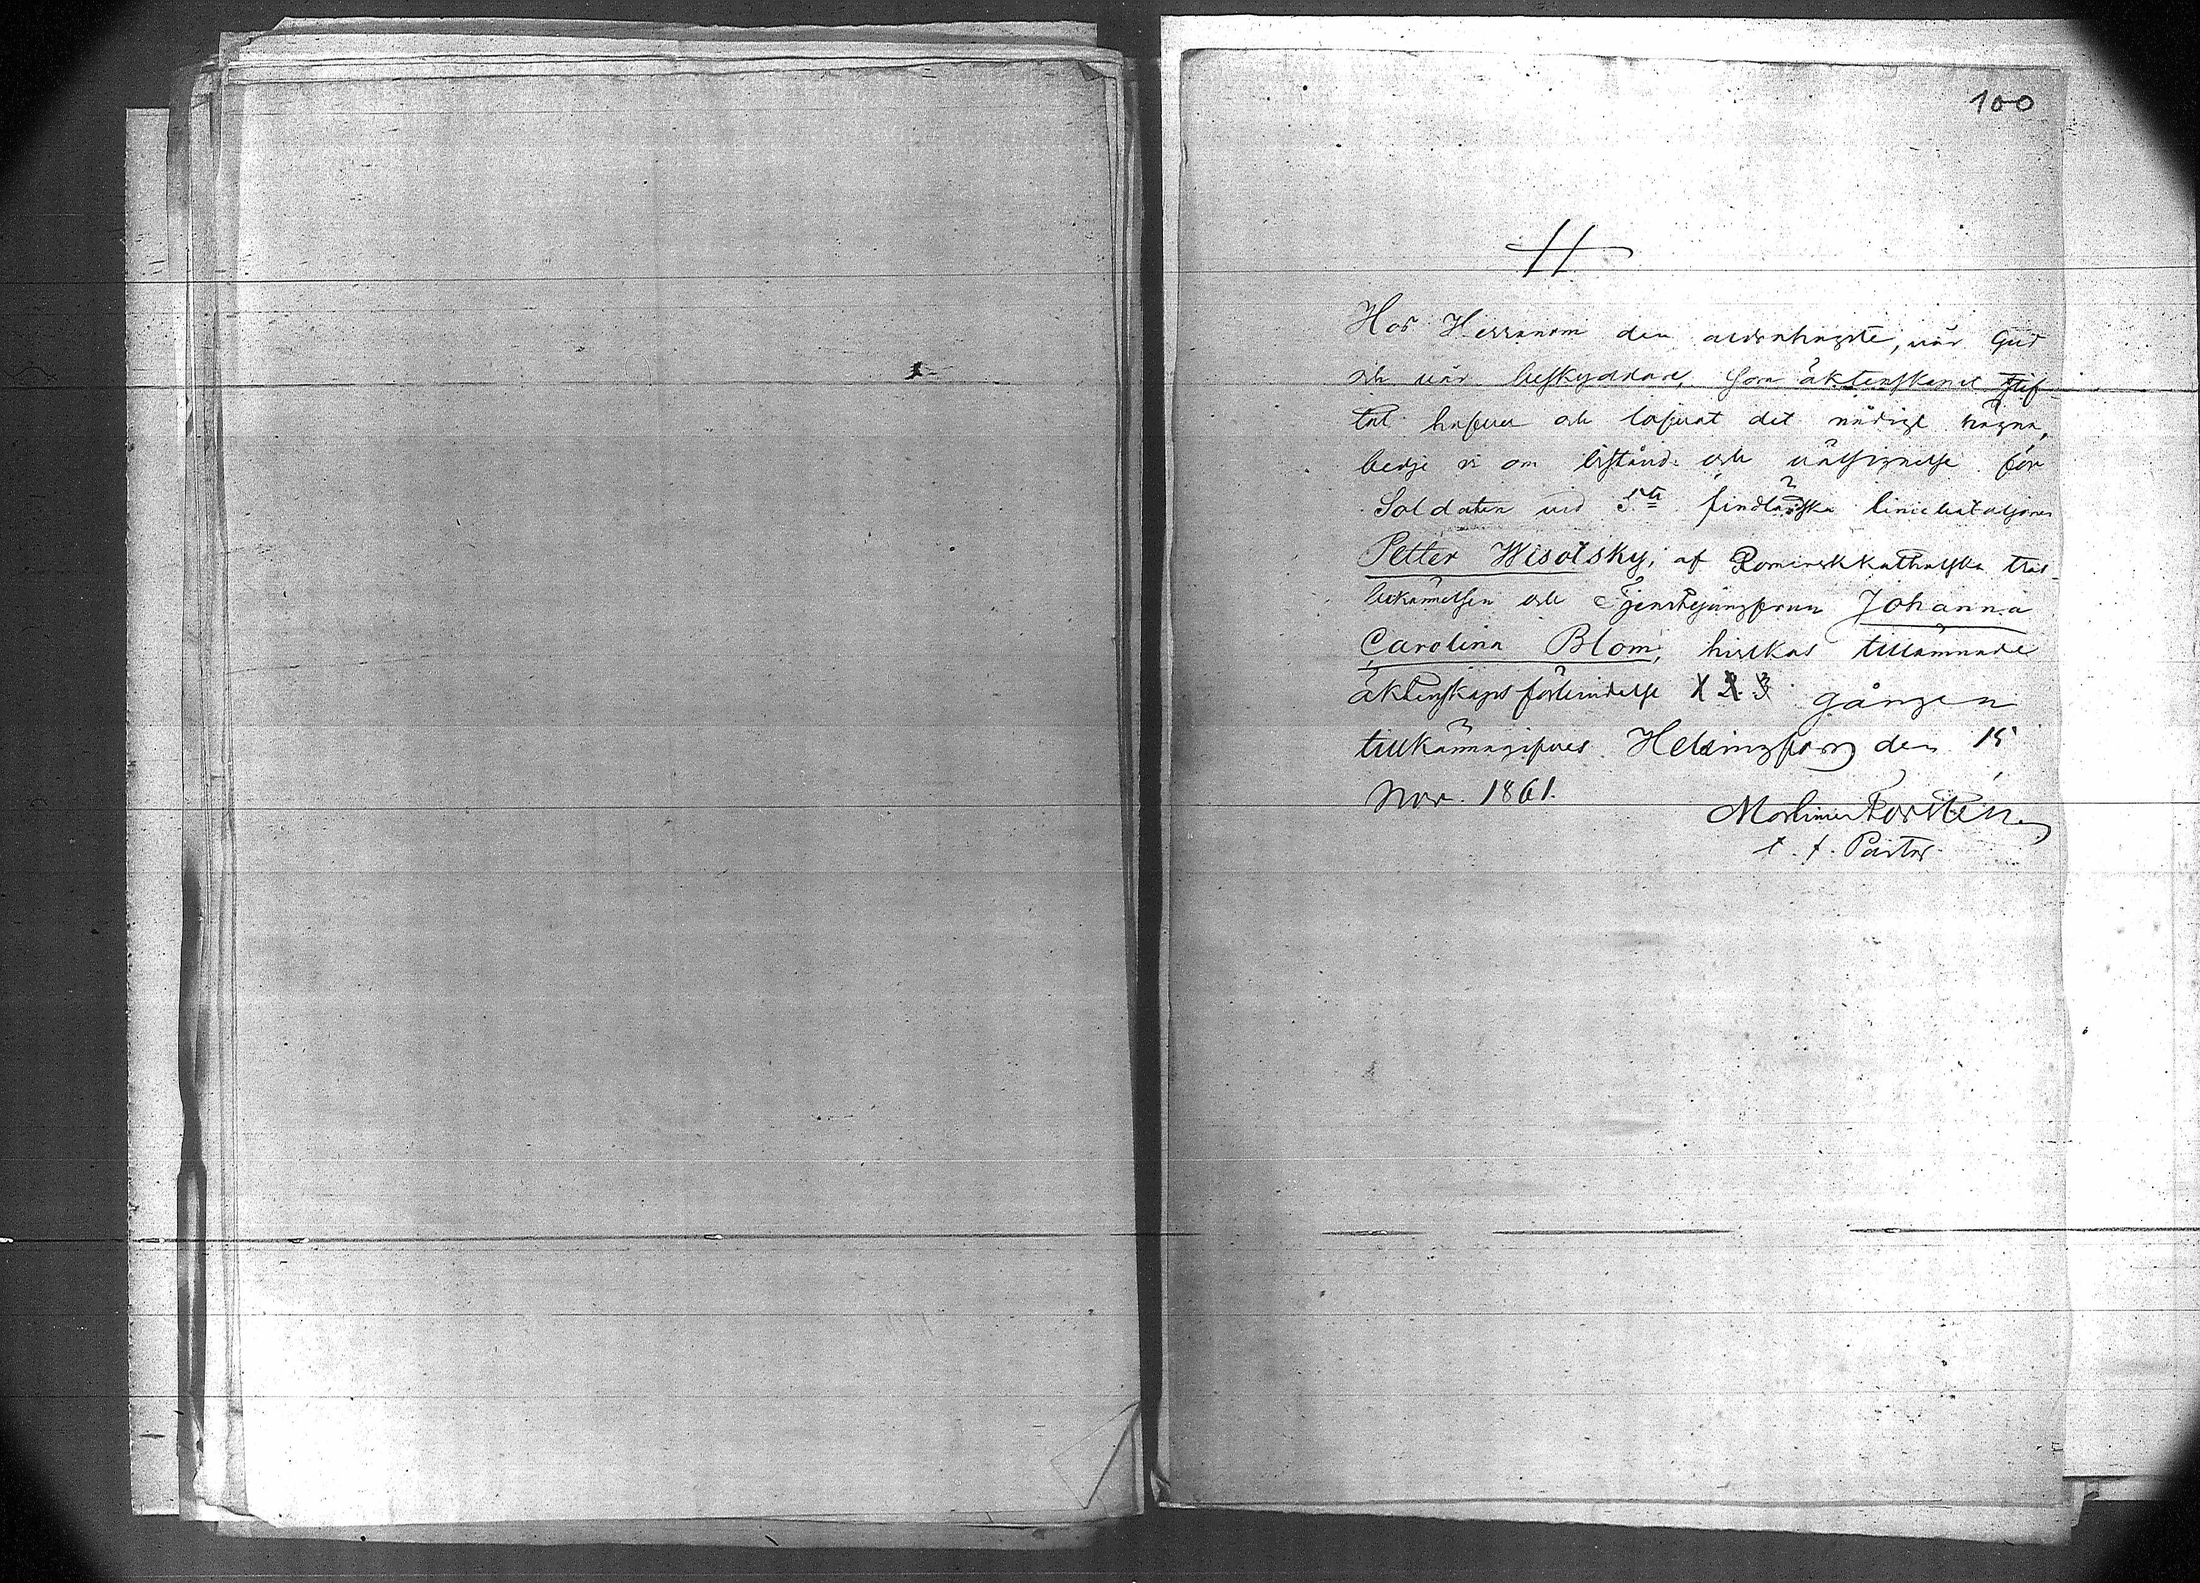 100
Hos Herranom den aldrahögste, vår Gud
och vår beskyddare, som äktenskapet stif-
tat hafver och lofvat det nådigt hägna,
bedje vi om bistånd och välsignelse för
Soldaten vid 5te findländska liniebataljonen
Petter Wisotsky, af Rominskkatholska tros-
bekännelsen och Tjenstejungfrun Johanna
Carolina Blom, hvilkas tillämnade
äktenskapsförbindelse 1 2 3 gången
tillkännagifves. Helsingfors den 15
Nov. 1861.
Mortimer Forstén
t. f. Pastor